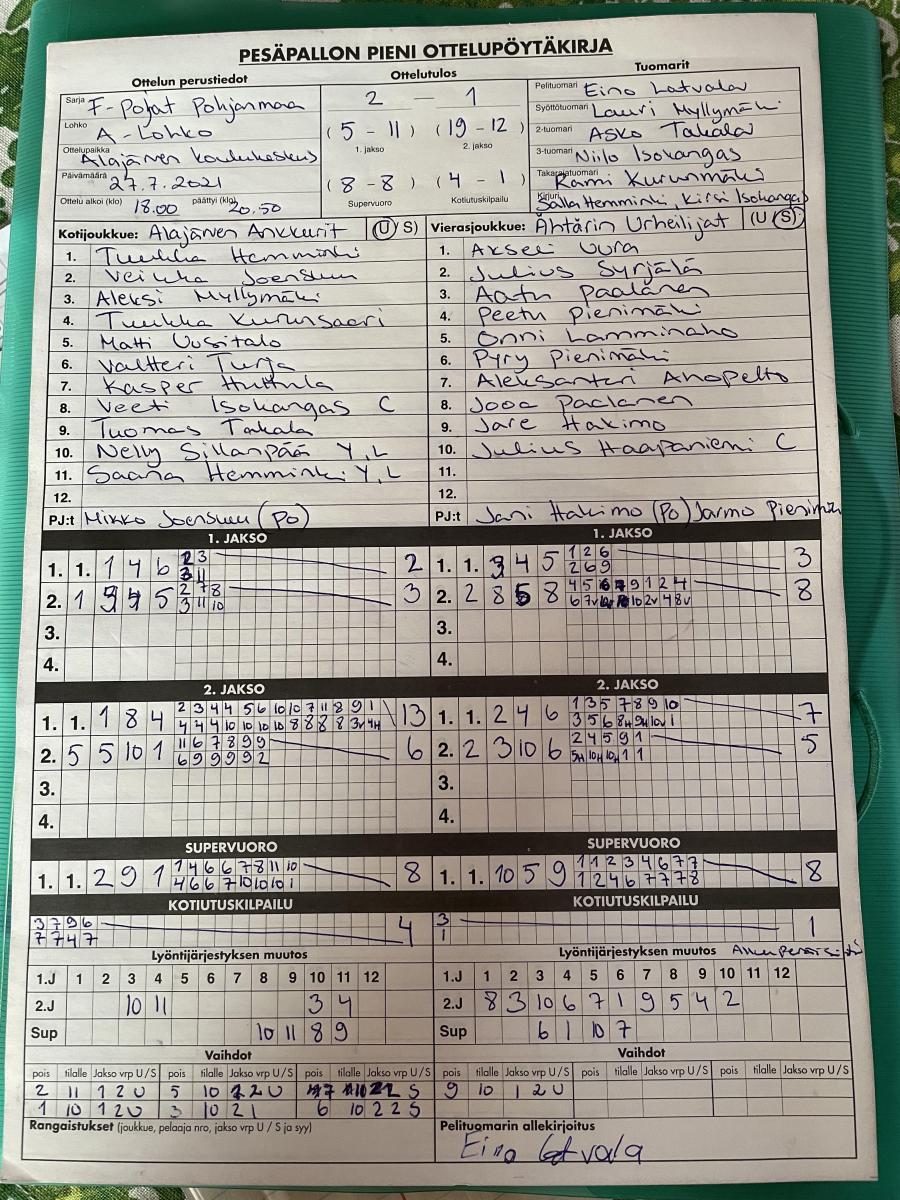 PESÄPALLON PIENI OTTELUPÖYTÄKIRJA
Ottelun perustiedot
Sarja F-Pojat Pohjanmaa
Lohko A-Lohko
Ottelupaikka Alajärven koulukeskus
Päivämäärä 27.7.2021
Ottelu alkoi (klo) 18.00 päättyi (klo) 20.50
Ottelutulos
2 — 1
(5 - 11) (19 - 12)
1. jakso 2. jakso
(8 - 8) (4 - 1)
Supervuoro Kotiutuskilpailu
Tuomarit
Pelituomari Eino Latvala
Syöttötuomari Lauri Myllymäki
2-tuomari Asko Takala
3-tuomari Niilo Isokangas
Takarajatuomari Rami Kurunmäki
Kirjuri Salla Hemminki, Kirsi Isokangas
Kotijoukkue: Alajärven Ankkurit (U/S)
1. Tuukka Hemminki
2. Veikka Joensuu
3. Aleksi Myllymäki
4. Tuukka Kurunsaari
5. Matti Uusitalo
6. Valtteri Turja
7. Kasper Huttula
8. Veeti Isokangas C
9. Tuomas Takala
10. Nelly Sillanpää Y, L
11. Saana Hemminki Y, L
12.
PJ:t Mikko Joensuu (PO)
Vierasjoukkue: Ähtärin Urheilijat (U/S)
1. Akseli Uura
2. Julius Syrjälä
3. Aatu Paalanen
4. Peetu Pienimäki
5. Onni Lamminaho
6. Pyry Pienimäki
7. Aleksanteri Ahopelto
8. Jooa Paalanen
9. Jare Hakimo
10. Julius Haapaniemi C
11.
12.
PJ:t Jani Hakimo (PO) Jarmo Pienimäki
1. JAKSO
1. 1. 1 4 6 2 3 2
3 11
2. 1 9 4 5 2 7 8 3
3 11 10
3.
4.
1. JAKSO
1. 1. 3 4 5 1 2 6 3
2 6 9
2. 2 8 5 8 8
3.
4.
2. JAKSO
1. 1. 1 8 4 2 3 4 4 5 6 10 10 7 11 8 9 1 13
4 4 4 10 10 10 10 8 8 8 8 3v 4H
2. 5 5 10 1 11 6 7 8 9 9 6
6 9 9 9 9 2
3.
4.
2. JAKSO
1. 1. 2 4 6 1 3 5 7 8 9 10 7
3 5 6 8H 9H 10v 1
2. 2 3 10 6 2 4 5 9 1 5
5H 10H 10H 1 1
3.
4.
SUPERVUORO
1. 1. 2 9 1 1 4 6 6 7 8 11 10 8
4 6 6 7 10 10 10 1
SUPERVUORO
1. 1. 10 5 9 1 1 2 3 4 6 7 7 8
1 2 4 6 7 7 7 8
KOTIUTUSKILPAILU
3 7 9 6 4
7 7 4 7
KOTIUTUSKILPAILU
3 1
1
Lyöntijärjestyksen muutos
1.J 1 2 3 4 5 6 7 8 9 10 11 12
2.J 10 11 3 4
Sup 10 11 8 9
Lyöntijärjestyksen muutos
1.J 1 2 3 4 5 6 7 8 9 10 11 12
2.J 8 3 10 6 7 1 9 5 4 2
Sup 6 1 10 7
Vaihdot
pois tilalle Jakso vrp U / S pois tilalle Jakso vrp U / S pois tilalle Jakso vrp U / S
2 11 1 2 U 5 10 2 2 U
1 10 1 2 U 3 10 2 1 6 10 2 2 S
Vaihdot
pois tilalle Jakso vrp U / S pois tilalle Jakso vrp U / S pois tilalle Jakso vrp U / S
9 10 1 2 U
Rangaistukset (joukkue, pelaaja nro, jakso vrp U / S ja syy)
Pelituomarin allekirjoitus
Eino Latvala